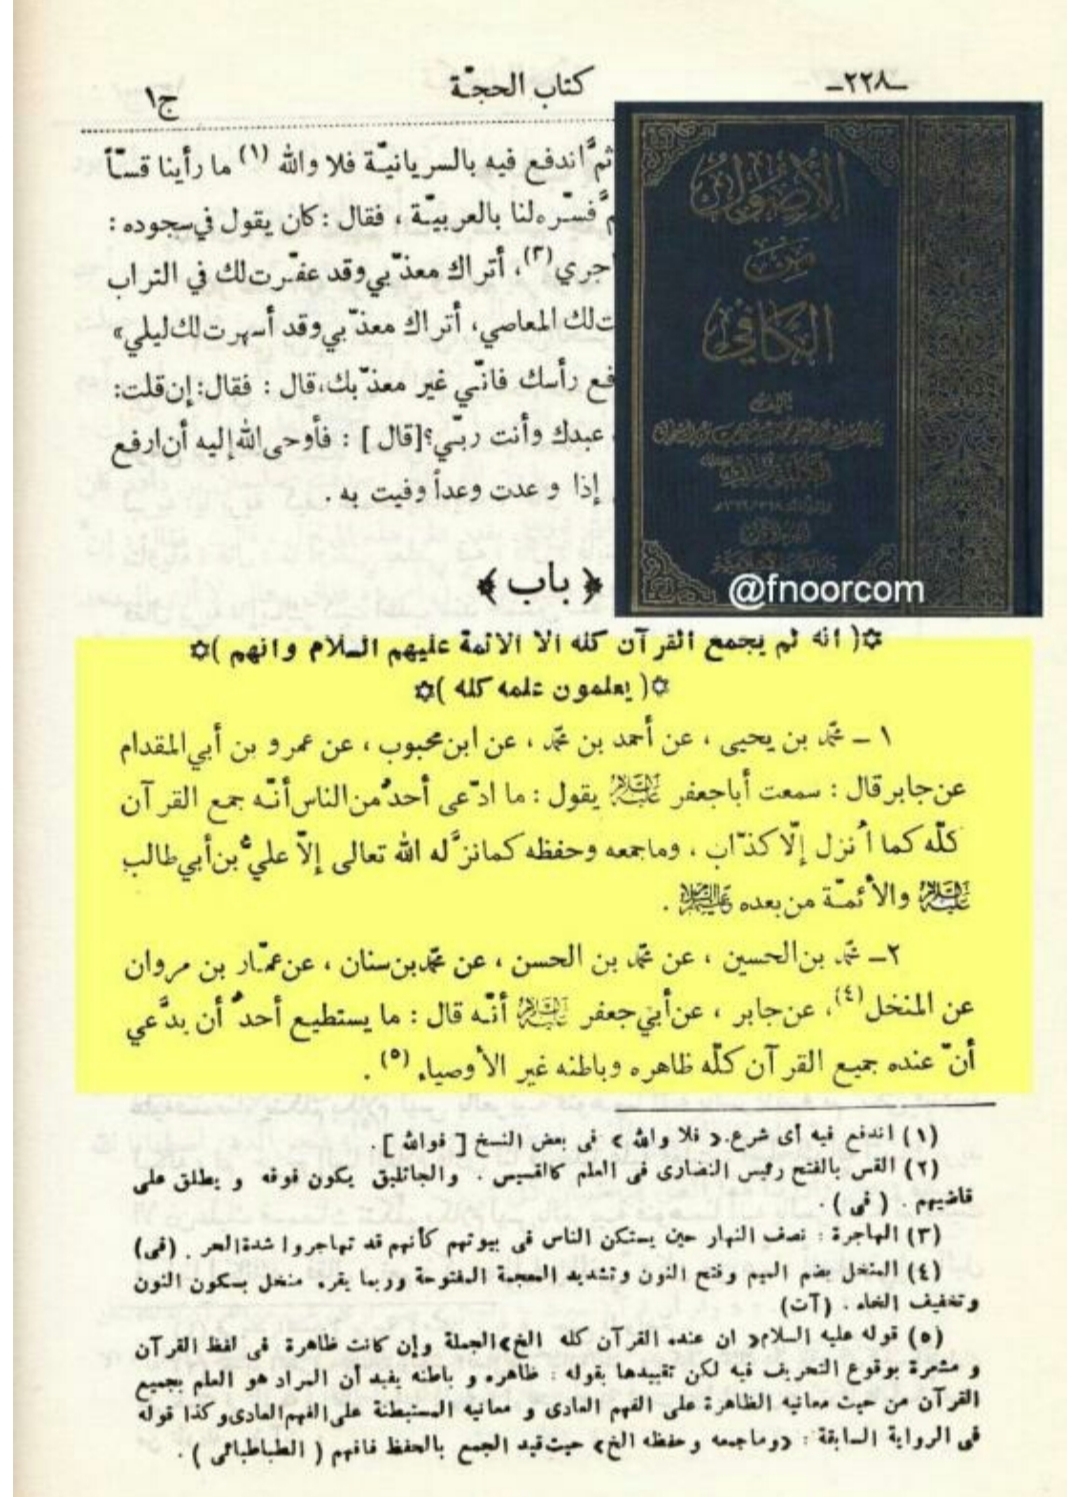 ـ٢٢٨ـ
كتاب الحجّة
ج١
ثمَّ اندفع فيه بالسريانيّة فلا والله (١) ما رأينا قسّاً
فسّره لنا بالعربيّة ، فقال : كان يقول في سجوده :
اجري(٣)، أتراك معذّبي وقد عفّرت لك في التراب
ت لك المعاصي، أتراك معذّبي وقد أسهرت لك ليلي»
فع رأسك فانّي غير معذّبك، قال : فقال: إن قلت:
عبدك وأنت ربّي؟[قال ] : فأوحى الله إليه أن ارفع
إذا وعدت وعداً وفيت به .
الأصول
من
الكافي
تأليف
@fnoorcom
﴿ باب ﴾
☆( انه لم يجمع القرآن كله الا الائمة عليهم السلام وانهم )☆
☆( يعلمون علمه كله )☆
١ ـ محمّد بن يحيى ، عن أحمد بن محمّد ، عن ابن محبوب ، عن عمرو بن أبي المقدام
عن جابر قال : سمعت أباجعفر عليه السلام يقول : ما ادّعى أحدٌ من الناس أنّه جمع القرآن
كلّه كما اُنزل إلّا كذّاب ، وما جمعه وحفظه كما نزَّله الله تعالى إلّا عليُّ بن أبي طالب
عليه السلام والأئمّة من بعده عليهم السلام .
٢ـ محمّد بن الحسين ، عن محمّد بن الحسن ، عن محمّد بن سنان ، عن عمّار بن مروان
عن المنخل(٤)، عن جابر ، عن أبي جعفر عليه السلام أنّه قال : ما يستطيع أحدٌ أن يدَّعي
أنّ عنده جميع القرآن كلّه ظاهره وباطنه غير الأوصياء (٥) .
(١) اندفع فيه أى شرع.« فلا والله » فى بعض النسخ [ فوالله ] .
(٢) القس بالفتح رئيس النصارى فى العلم كالقسيس . والجاثليق يكون فوقه و يطلق على
قاضيهم . ( فى ) .
(٣) الهاجرة : نصف النهار حين يستكن الناس فى بيوتهم كأنهم قد تهاجروا شدة الحر . (فى)
(٤) المنخل بضم الميم وفتح النون وتشديد المعجمة المفتوحة وربما يقرء منخل بسكون النون
وتخفيف الخاء . (آت)
(٥) قوله عليه السلام« ان عنده القرآن كله الخ»الجملة وإن كانت ظاهرة فى لفظ القرآن
و مشعرة بوقوع التحريف فيه لكن تقييدها بقوله : ظاهره و باطنه يفيد أن المراد هو العلم بجميع
القرآن من حيث معانيه الظاهرة على الفهم العادى و معانيه المستبطنة على الفهم العادى و كذا قوله
فى الرواية السابقة : «وماجمعه وحفظه الخ» حيث قيد الجمع بالحفظ فافهم ( الطباطبائى ) .